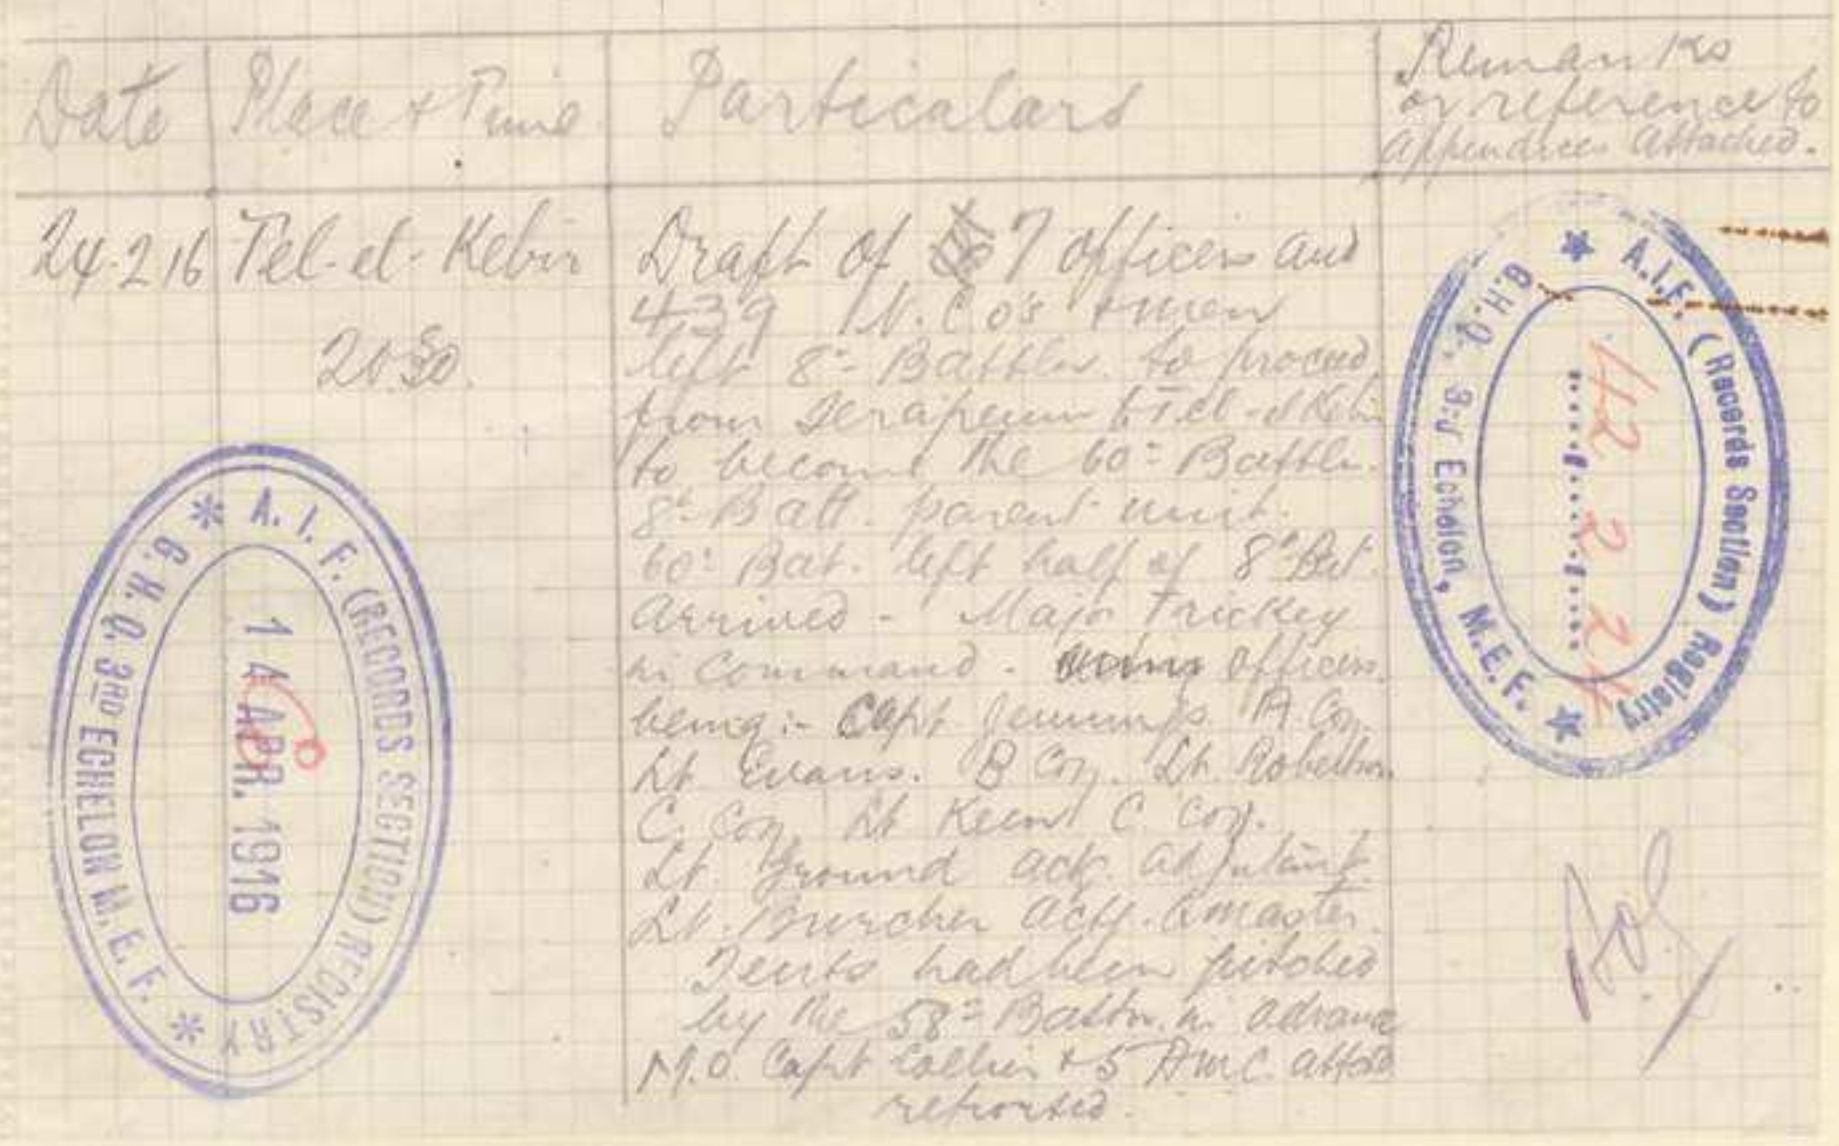 Date
Place & Time
Particulars
Remarks
or reference to
appendices attached.
24.2.16
Tel-el-Kebir
Draft of 7 officers and
439 N.C.O's & men
left 8th Battln. to proceed
from Serapeum to Tel-el-Kebir
to become the 60th Battln.
8th Batt. parent unit.
60th Bat. left half of 8th Bat.
Arrived - Major Trickey
in Command - Officers
being:- Capt Jennings A Coy.
Lt. Evans. B Coy. Lt. Robertson
C. Coy. Lt Keen C Coy.
Lt. Ground actg. adjutant.
Lt. Burcher actg. Qmaster.
Tents had been pitched
by the 58th Battn. in advance
M.O. Capt Collier & 5 AMC. attchd
reported.
A.I.F. (RECORDS SECTION) REGISTRY
G.H.Q. 3RD ECHELON M.E.F.
14 APR. 1916
A.I.F. (Records Section) Registry
G.H.Q. 3rd Echelon, M.E.F.
42 2 24